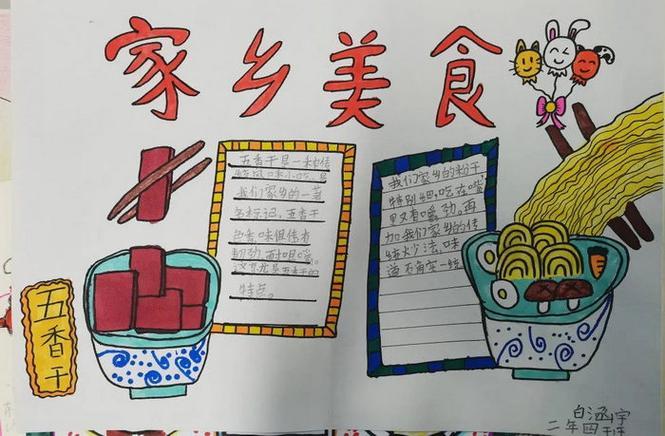 家乡美食
五香干
五香干是一种传
统风味小吃,是
我们家乡的一著
名标记。五香干
色香味俱传市
韧劲,耐咀嚼。
这也是五香干的
特点。
我们家乡的粉干
特别细,吃在嘴
里又有嚼劲。再
加我们家乡的传
统炒法,味
道不
一统
白涵宇
二年四班